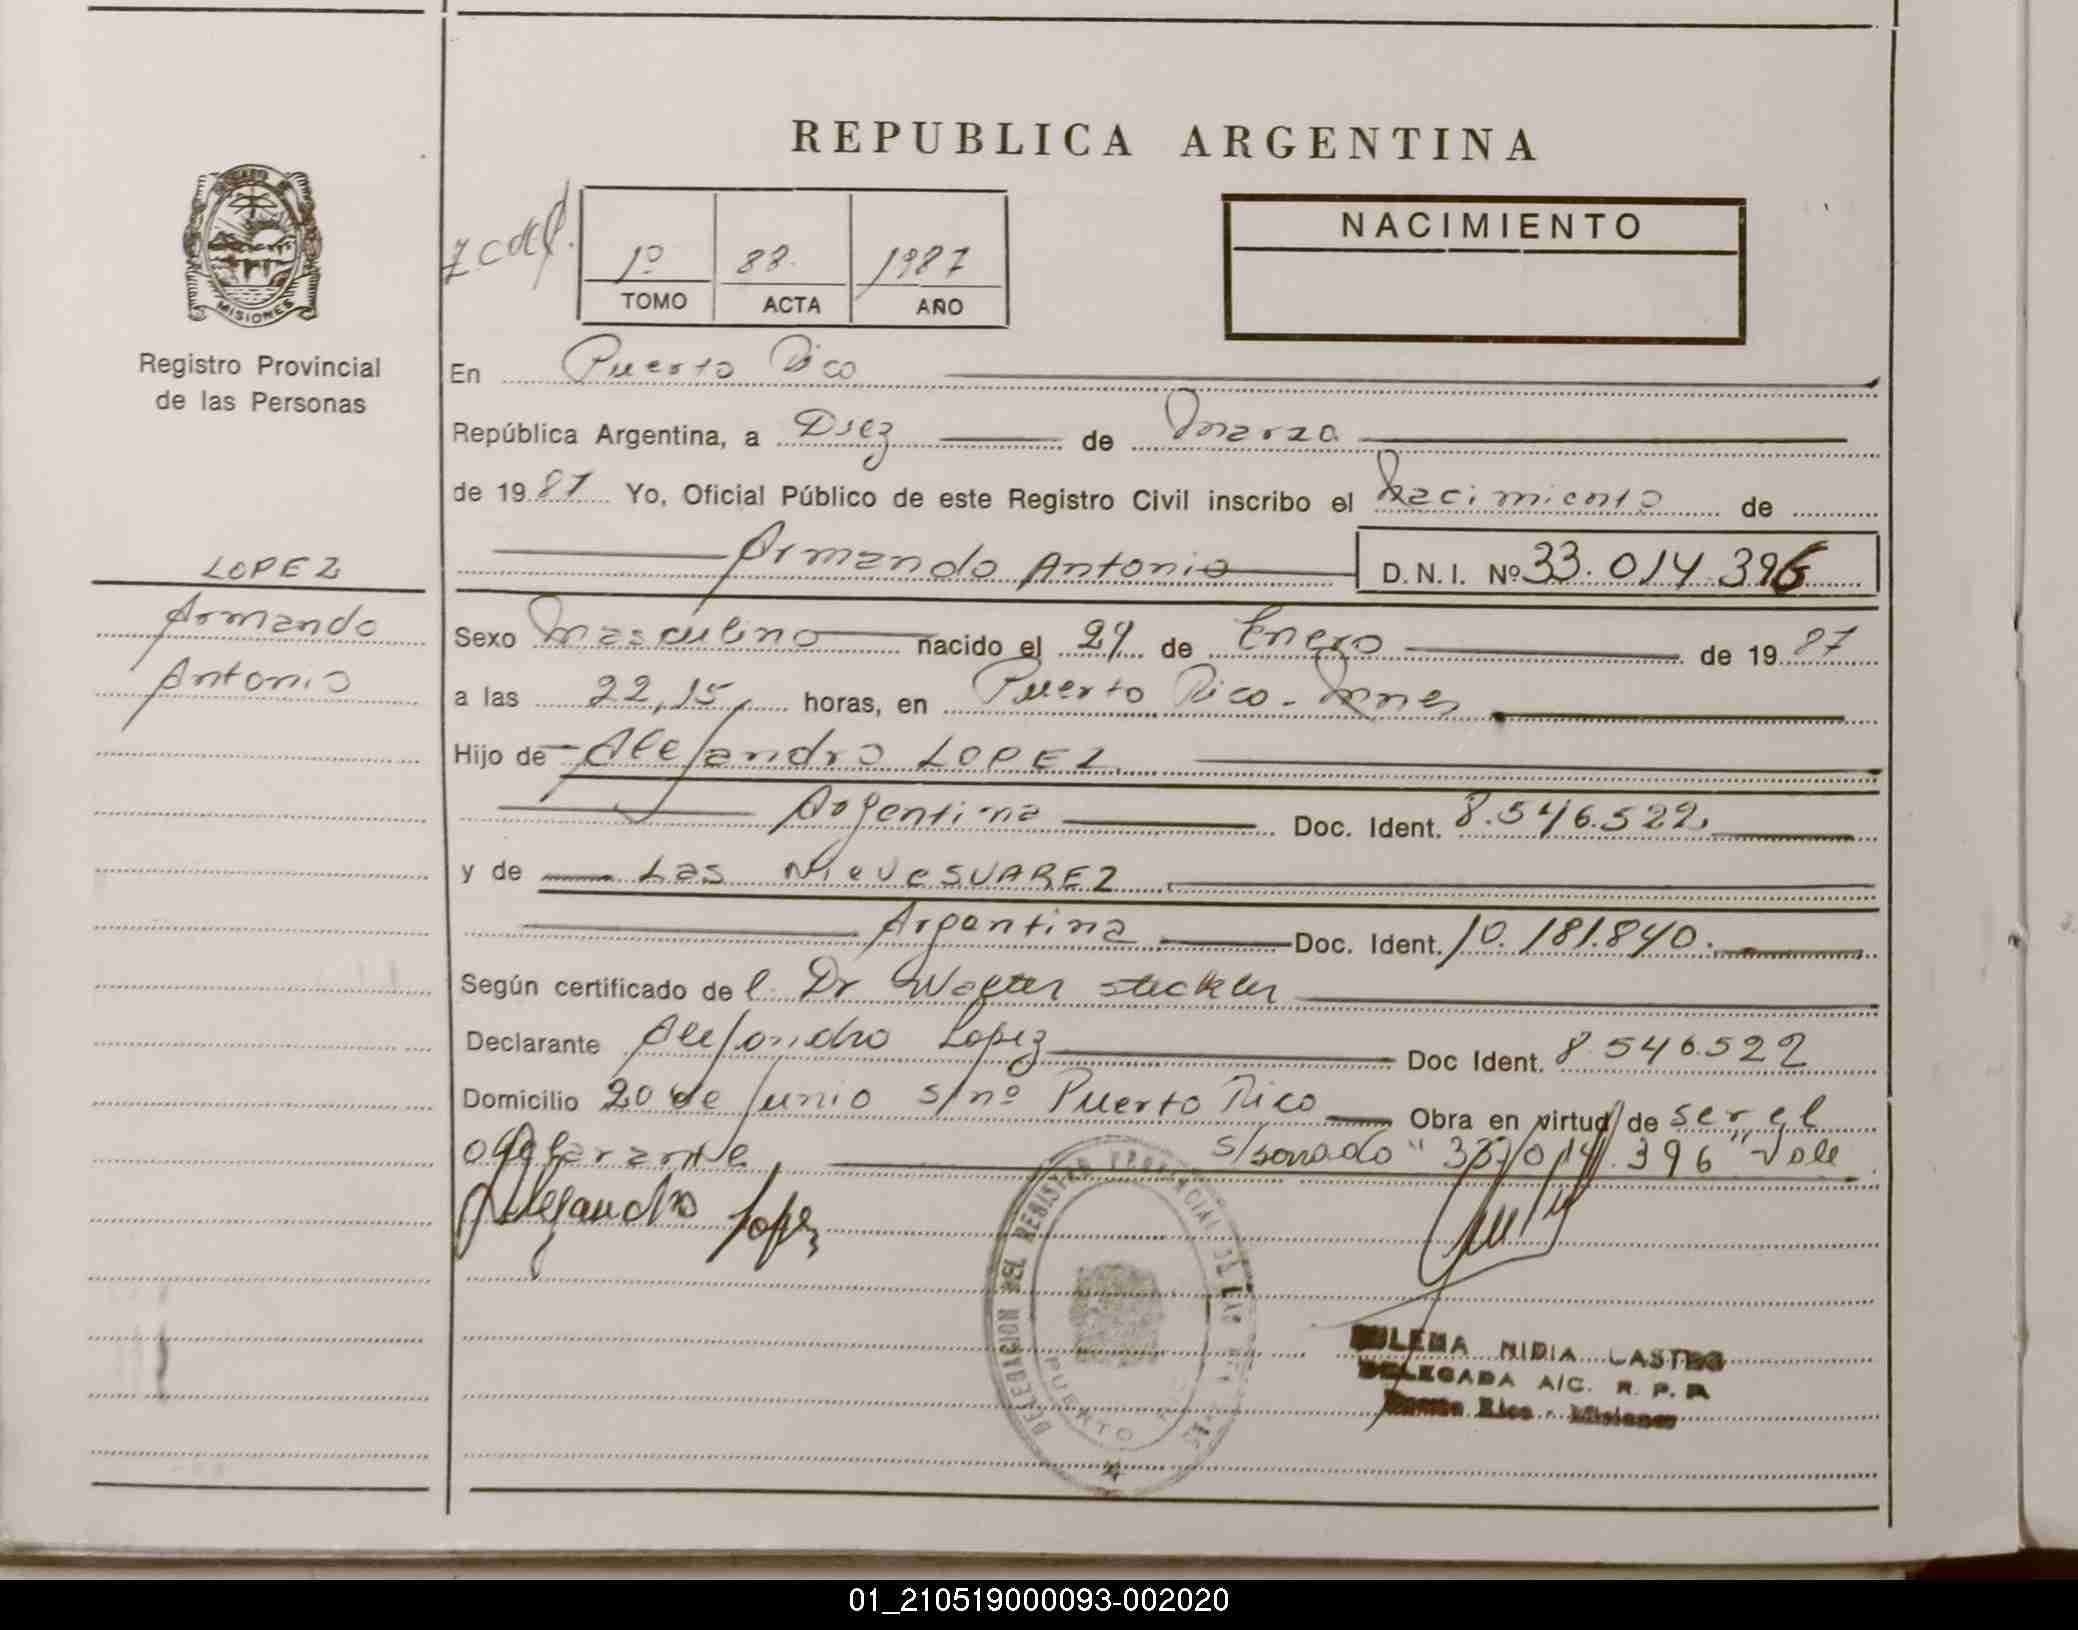 REPUBLICA ARGENTINA
NACIMIENTO
1º 88. 1987
TOMO ACTA AÑO
MISIONES
Registro Provincial
de las Personas
En Puerto Rico
República Argentina, a Diez de Marzo
de 1987 Yo, Oficial Público de este Registro Civil inscribo el Nacimiento de
LOPEZ
Armando
Antonio
Armando Antonio D.N.I. Nº 33.014.396
Sexo Masculino nacido el 29 de Enero de 1987
a las 22,15 horas, en Puerto Rico - Mnes
Hijo de Alejandro LOPEZ
Argentina Doc. Ident. 8.546.522.
y de Las Nieve SUAREZ
Argentina Doc. Ident. 10.181.840.
Según certificado del Dr Walter Steckler
Declarante Alejandro Lopez Doc Ident. 8.546.522
Domicilio 20 de Junio s/nº Puerto Rico Obra en virtud de ser el
declarante s/borrado "33.014.396" Vale
Alejandro Lopez
DELEGACION DEL REGISTRO PROVINCIAL DE LAS
PUERTO
NIDIA CASTRO
DELEGADA A/C. R. P. P.
Puerto Rico - Misiones
01_210519000093-002020